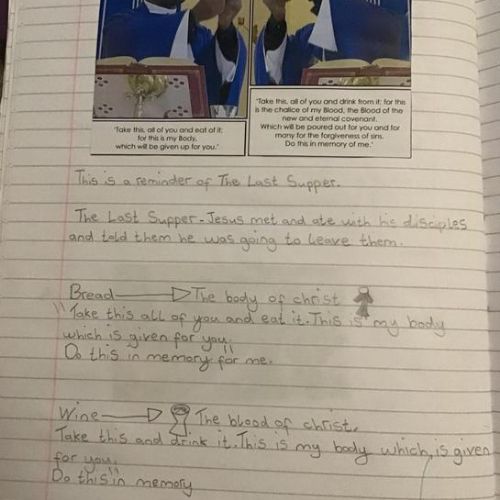 'Take this, all of you and eat of it:
for this is my Body,
which will be given up for you.'
'Take this, all of you and drink from it: for this
is the chalice of my Blood, the Blood of the
new and eternal covenant.
Which will be poured out for you and for
many for the forgiveness of sins.
Do this in memory of me.'
This is a reminder of The Last Supper.
The Last Supper - Jesus met and ate with his disciples
and told them he was going to leave them.
Bread → The body of christ
"Take this all of you and eat it. This is my body
which is given for you."
Do this in memory for me.
Wine → The blood of christ.
Take this and drink it. This is my body which, is given
for you."
Do this in memory